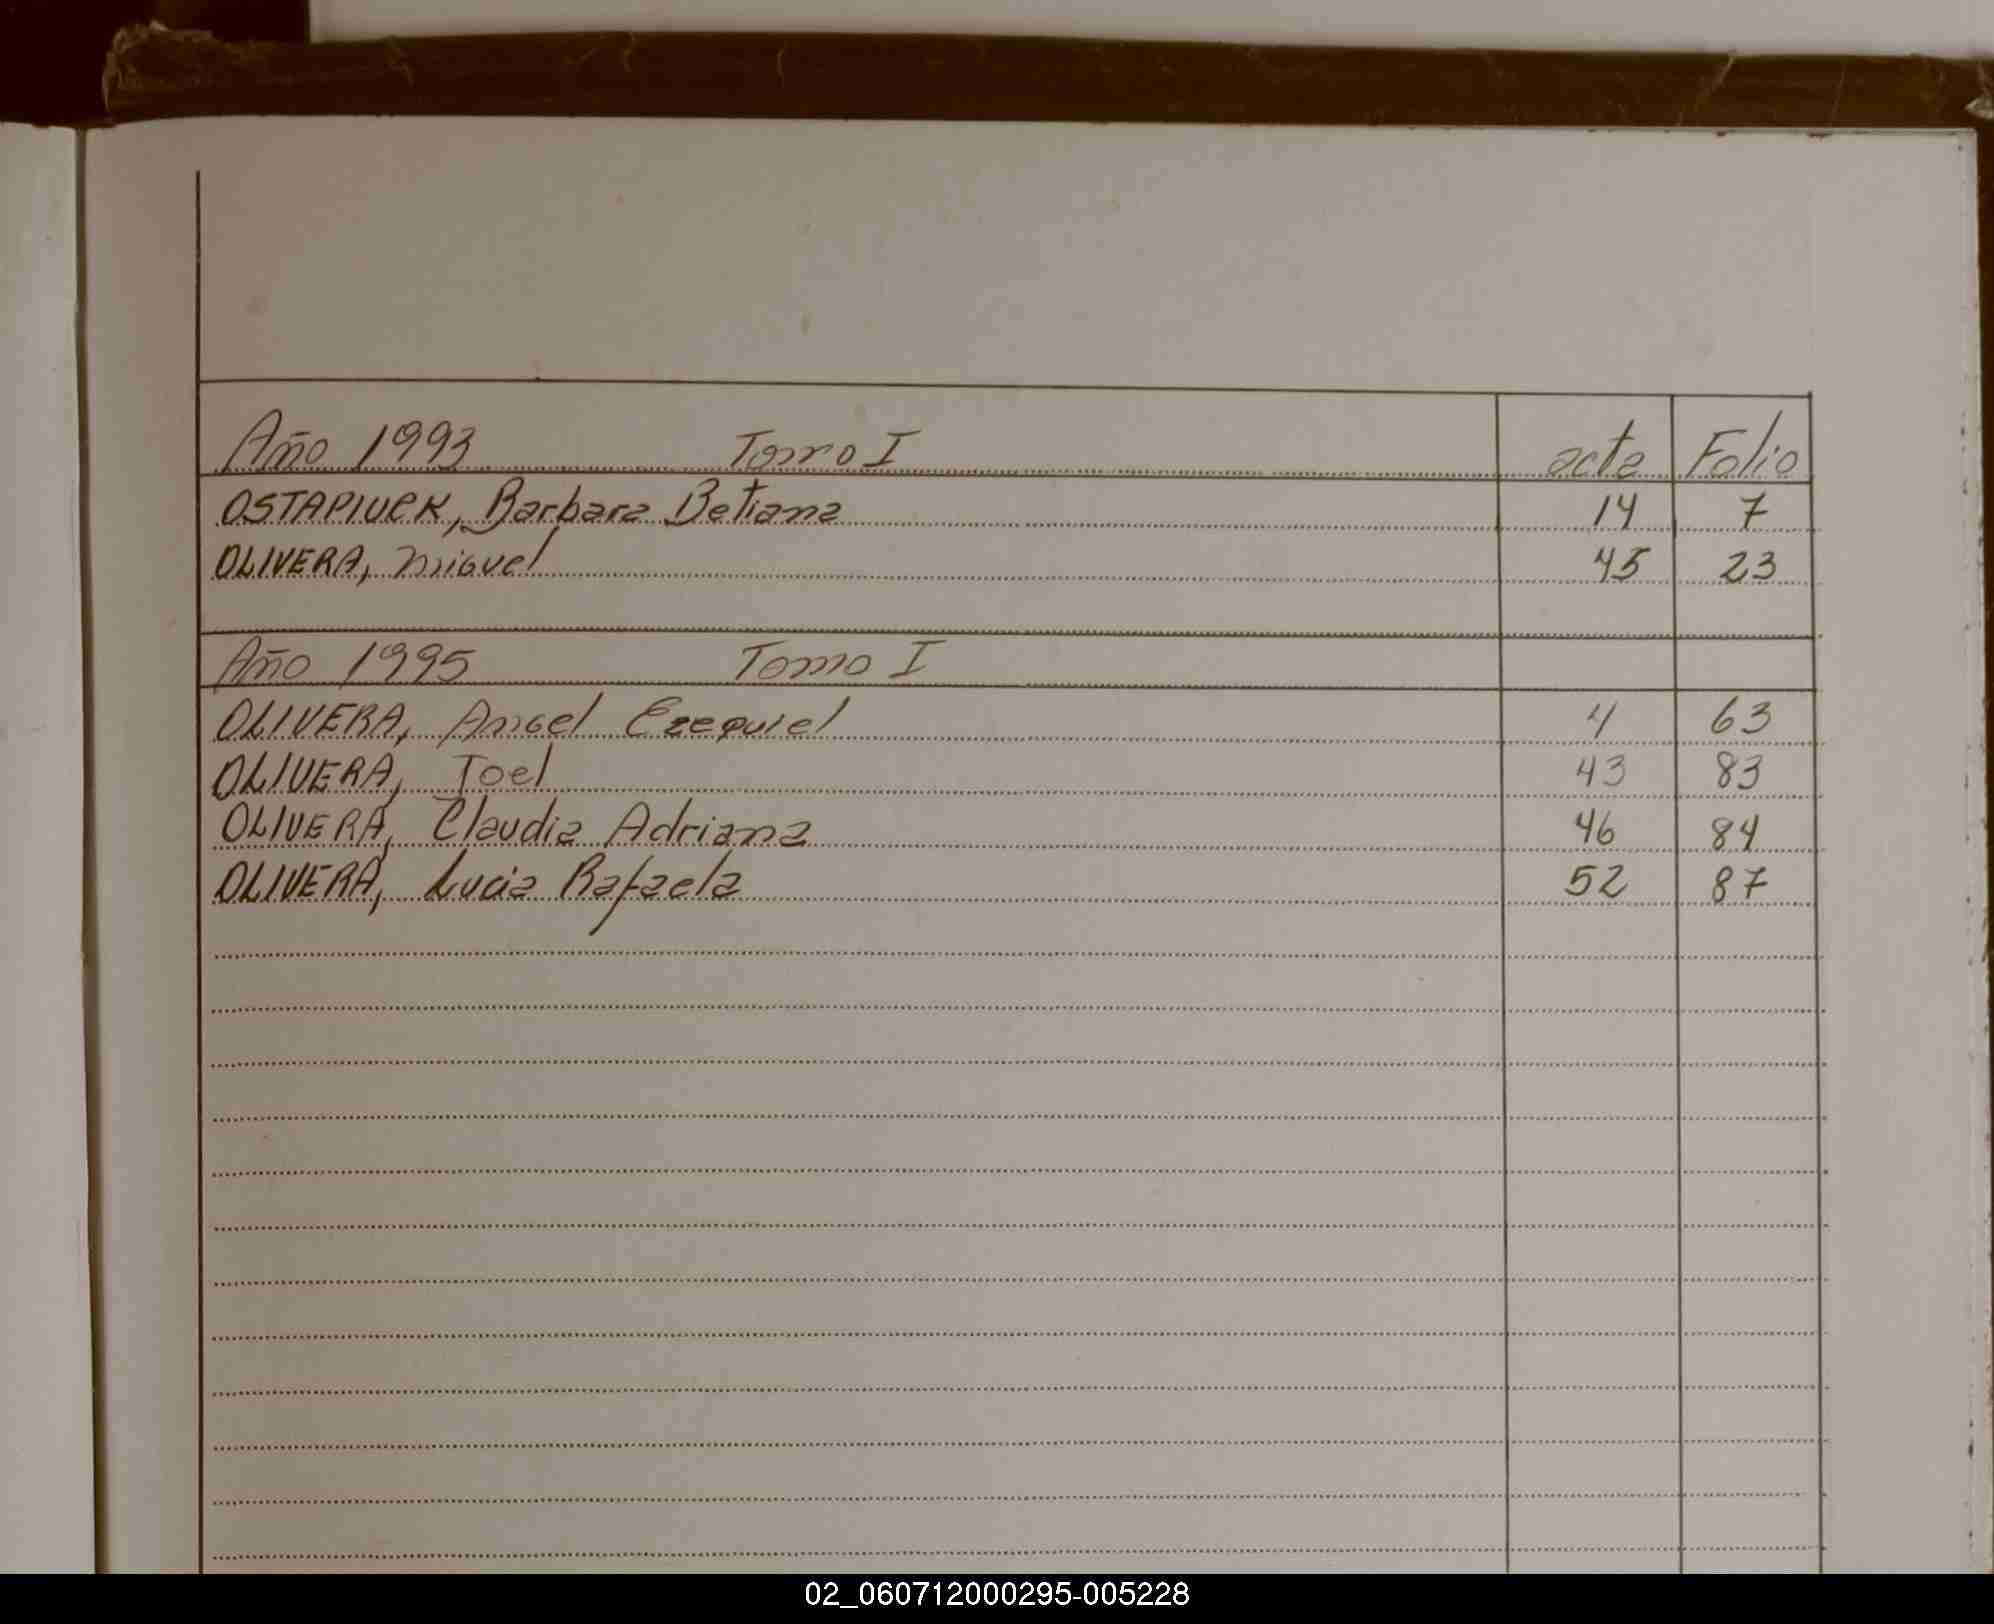 Año 1993 Tomo I acta Folio
OSTAPIUCK, Barbara Betiana 14 7
OLIVERA, Miguel 45 23
Año 1995 Tomo I
OLIVERA, Angel Ezequiel 4 63
OLIVERA, Joel 43 83
OLIVERA, Claudia Adriana 46 84
OLIVERA, Lucia Rafaela 52 87
02_060712000295-005228